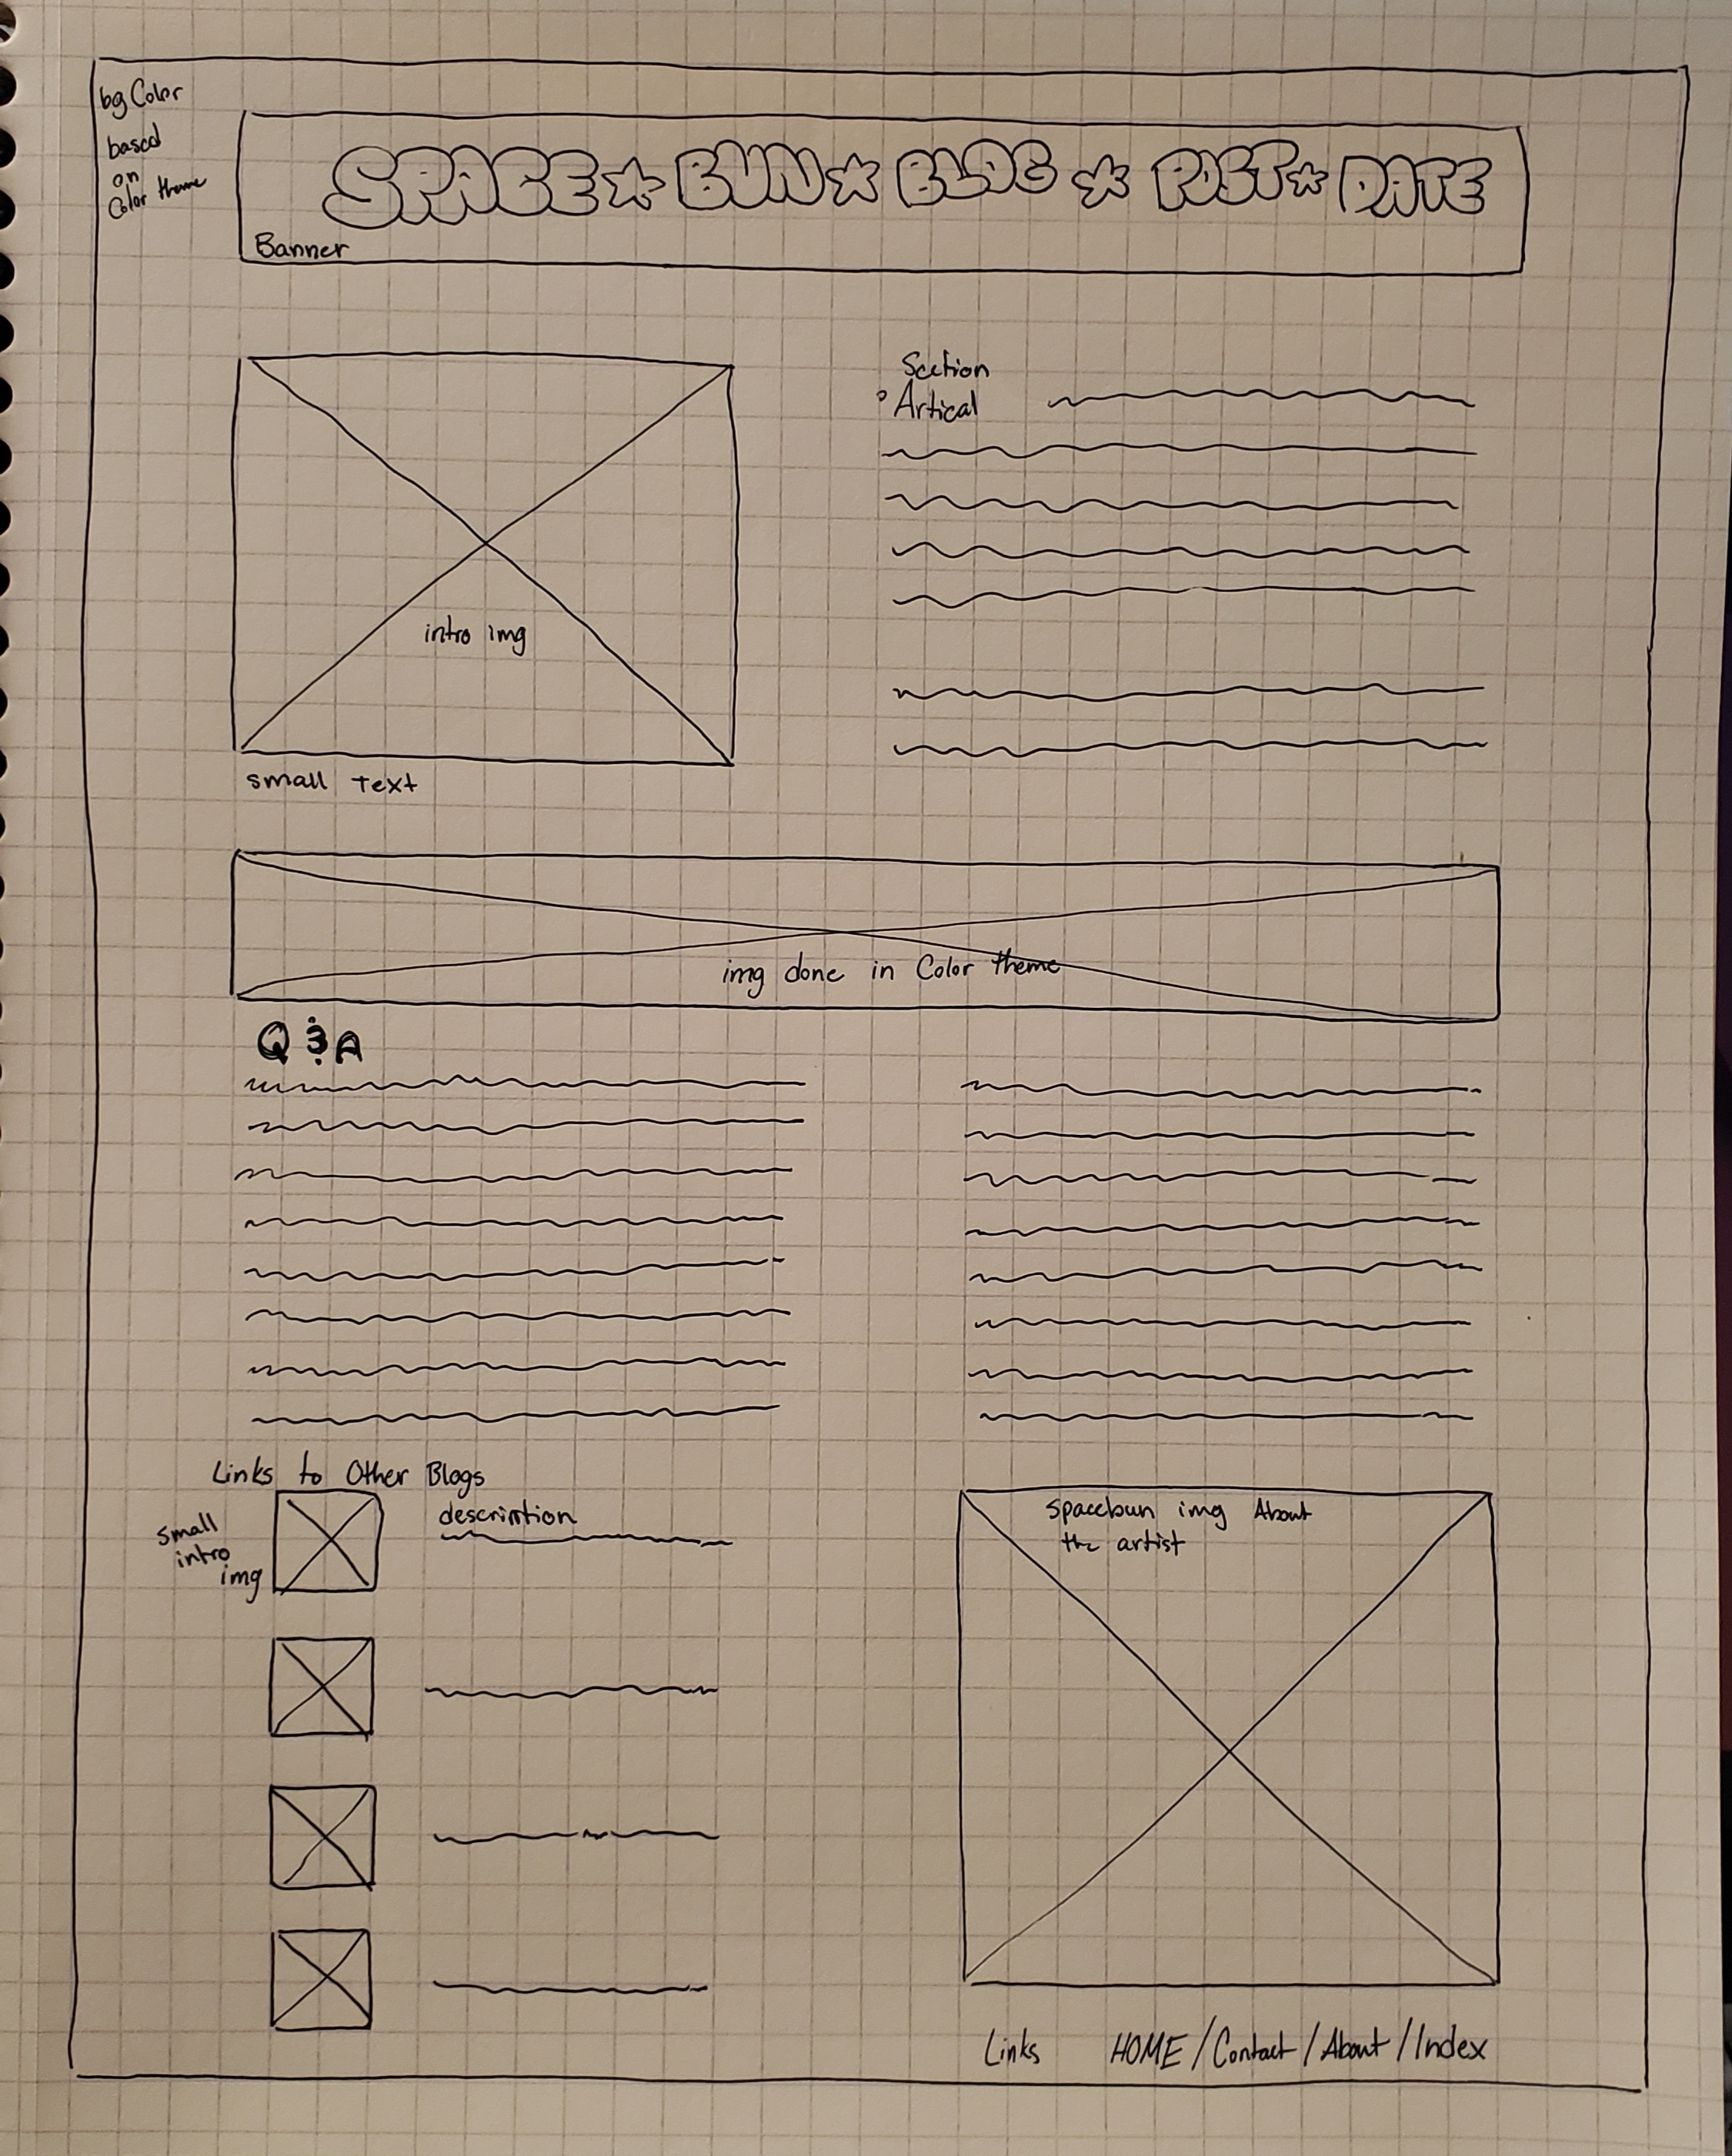 bgColor
based
on
Color theme
SPACE BUN BLOG POST DATE
Banner
Section
Artical
intro img
small Text
img done in Color theme
Q & A
Links to Other Blogs
small
intro
img
description
spacebun img About
the artist
Links HOME / Contact / About / Index